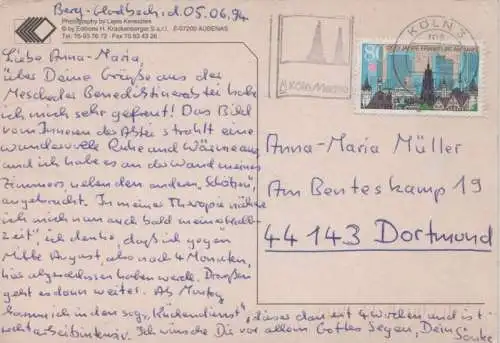 Berg.-Gladbach, d. 05.06.94
Photography by Lajos Keresztes
© by Editions H. Krackenberger S.a.r.l. F-07200 AUBENAS
Tel: 75-93 76 72 · Fax 75 93 43 26
Liebe Anna-Maria,
über Deine Grüße aus der
Mescheder Benediktinerabtei habe
ich mich sehr gefreut! Das Bild
vom Inneren der Abtei strahlt eine
wundervolle Ruhe und Wärme aus
und ich habe es an der Wand meines
Zimmers, neben den anderen "Schätzen",
angebracht. In meiner Therapie nähere
ich mich nun auch bald meiner "Halb-
zeit", ich denke, daß ich gegen
Mitte August, also nach 4 Monaten,
hier abgeschlossen haben werde. Draußen
geht es dann weiter. Ab Montag
komm ich in den sog. "Küchendienst", dieser dauert 4 Wochen und ist
recht arbeitsintensiv. Ich wünsche Dir vor allem Gottes Segen, Dein
KÖLN 3
80
1200 JAHRE FRANKFURT AM MAIN
KölnMesse
Anna-Maria Müller
Am Benteskamp 19
44143 Dortmund